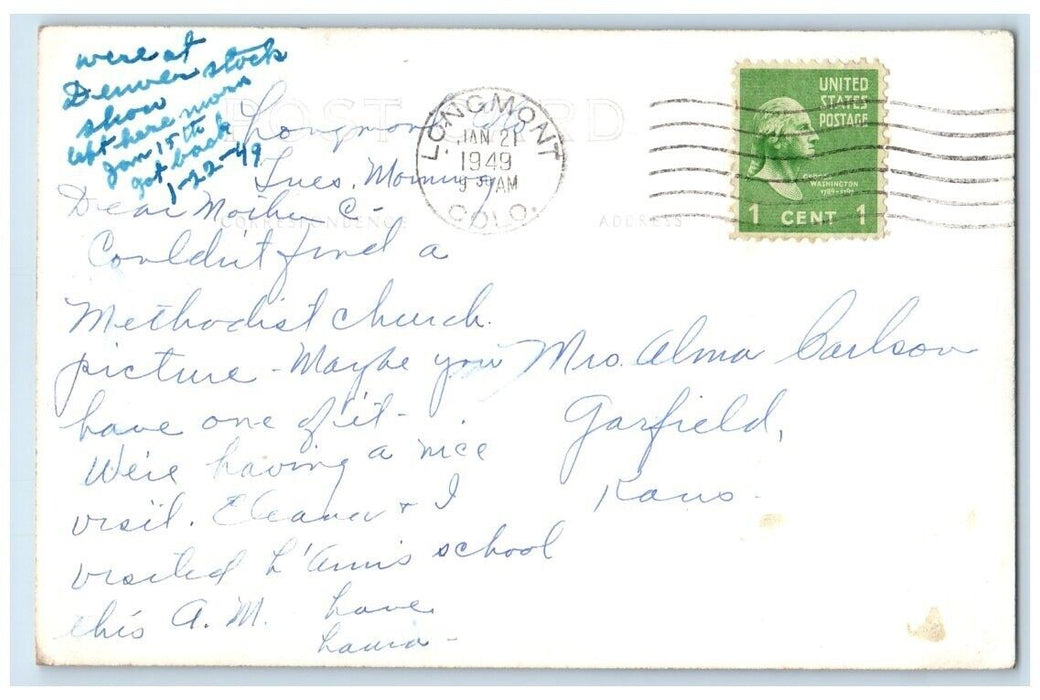 were at
Denver stock
show
left here morn
Jan 15th &
got back
1-22-49
POST CARD
Longmont, Colo.
Tues. Morning
LONGMONT
JAN 21
1949
9 AM
COLO.
UNITED
STATES
POSTAGE
GEORGE
WASHINGTON
1789-1797
1 CENT 1
CORRESPONDENCE
ADDRESS
Dear Mother C-
Couldn't find a
Methodist church
picture - Maybe you
have one of it-
We're having a nice
visit. Eleanor + I
visited L'Ann's school
this A.M.
Mrs. Alma Carlson
Garfield,
Kans.